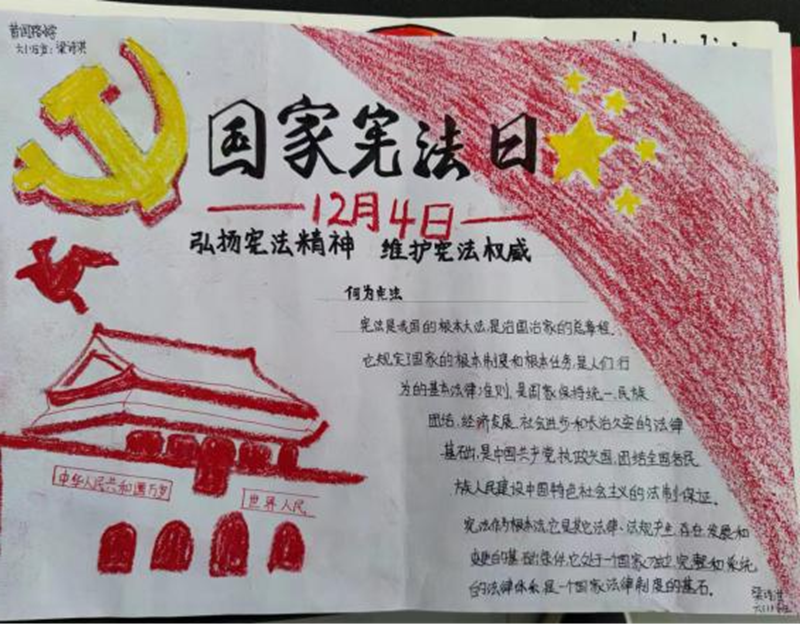 六(5)班:梁诗淇
国家宪法日
12月4日
弘扬宪法精神 维护宪法权威
何为宪法
宪法是我国的根本大法,是治国治家的总章程.
它规定了国家的根本制度和根本任务,是人们行
为的基本法律准则,是国家保持统一、民族
团结、经济发展、社会进步和长治久安的法律
基础,是中国共产党执政兴国,团结全国各民
族人民建设中国特色社会主义的法制保证。
宪法作为根本法,它是其它法律、法规产生、存在、发展和
变更的基础条件,它处于一个国家独立、完整和系统
的法律体系,是一个国家法律制度的基石。
中华人民共和国万岁
世界人民
梁诗淇